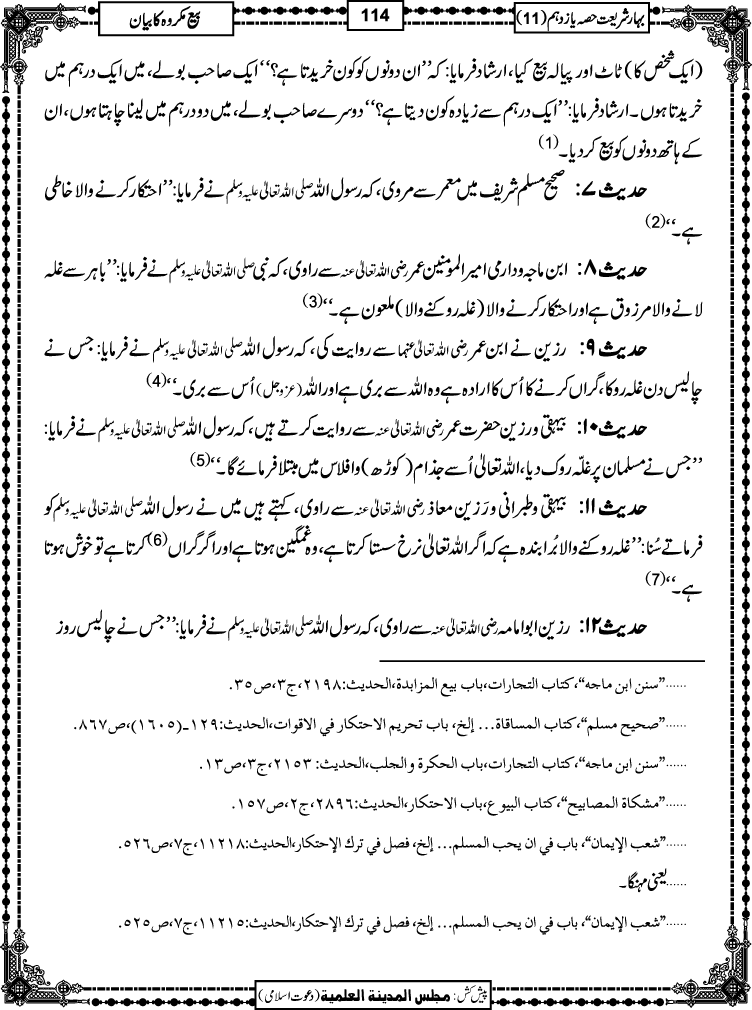 بہار شریعت حصہ یازدہم (11)
114
بیع مکروہ کا بیان
(ایک شخص کا) ٹاٹ اور پیالہ بیع کیا، ارشاد فرمایا: کہ ’’ان دونوں کو کون خریدتا ہے؟‘‘ ایک صاحب بولے، میں ایک درہم میں
خریدتا ہوں۔ ارشاد فرمایا: ’’ایک درہم سے زیادہ کون دیتا ہے؟‘‘ دوسرے صاحب بولے، میں دو درہم میں لینا چاہتا ہوں، ان
کے ہاتھ دونوں کو بیع کر دیا۔(1)
حدیث ۷: صحیح مسلم شریف میں معمر سے مروی، کہ رسول اللہ صلی اللہ تعالیٰ علیہ وسلم نے فرمایا: ’’احتکار کرنے والا خاطی
ہے۔‘‘(2)
حدیث ۸: ابن ماجہ و دارمی امیر المومنین عمر رضی اللہ تعالیٰ عنہ سے راوی، کہ نبی صلی اللہ تعالیٰ علیہ وسلم نے فرمایا: ’’باہر سے غلہ
لانے والا مرزوق ہے اور احتکار کرنے والا (غلہ روکنے والا) ملعون ہے۔‘‘(3)
حدیث ۹: رزین نے ابن عمر رضی اللہ تعالیٰ عنہما سے روایت کی، کہ رسول اللہ صلی اللہ تعالیٰ علیہ وسلم نے فرمایا: جس نے
چالیس دن غلہ روکا، گراں کرنے کا اُس کا ارادہ ہے وہ اللہ سے بری ہے اور اللہ (عزوجل) اُس سے بری۔‘‘(4)
حدیث ۱۰: بیہقی و رزین حضرت عمر رضی اللہ تعالیٰ عنہ سے روایت کرتے ہیں، کہ رسول اللہ صلی اللہ تعالیٰ علیہ وسلم نے فرمایا:
’’جس نے مسلمان پر غلّہ روک دیا، اللہ تعالیٰ اُسے جذام (کوڑھ) و افلاس میں مبتلا فرمائے گا۔‘‘(5)
حدیث ۱۱: بیہقی و طبرانی و رَزین معاذ رضی اللہ تعالیٰ عنہ سے راوی، کہتے ہیں میں نے رسول اللہ صلی اللہ تعالیٰ علیہ وسلم کو
فرماتے سُنا: ’’غلہ روکنے والا بُرا بندہ ہے کہ اگر اللہ تعالیٰ نرخ سستا کرتا ہے، وہ غمگین ہوتا ہے اور اگر گراں(6) کرتا ہے تو خوش ہوتا
ہے۔‘‘(7)
حدیث ۱۲: رزین ابو امامہ رضی اللہ تعالیٰ عنہ سے راوی، کہ رسول اللہ صلی اللہ تعالیٰ علیہ وسلم نے فرمایا: ’’جس نے چالیس روز
......”سنن ابن ماجه“،كتاب التجارات،باب بيع المزايدة،الحديث:٢١٩٨،ج٣،ص٣٥.
......”صحيح مسلم“،كتاب المساقاة... إلخ، باب تحريم الاحتكار في الاقوات،الحديث:١٢٩ـ(١٦٠٥)،ص٨٦٧.
......”سنن ابن ماجه“،كتاب التجارات،باب الحكرة والجلب،الحديث: ٢١٥٣،ج٣،ص١٣.
......”مشكاة المصابيح“، كتاب البيوع،باب الاحتكار،الحديث:٢٨٩٦،ج٢،ص١٥٧.
......”شعب الإيمان“، باب في ان يحب المسلم... إلخ، فصل في ترك الإحتكار،الحديث:١١٢١٨،ج٧،ص٥٢٦.
......یعنی مہنگا۔
......”شعب الإيمان“، باب في ان يحب المسلم... إلخ، فصل في ترك الإحتكار،الحديث:١١٢١٥،ج٧،ص٥٢٥.
پیش کش: مجلس المدينة العلمية (دعوت اسلامی)